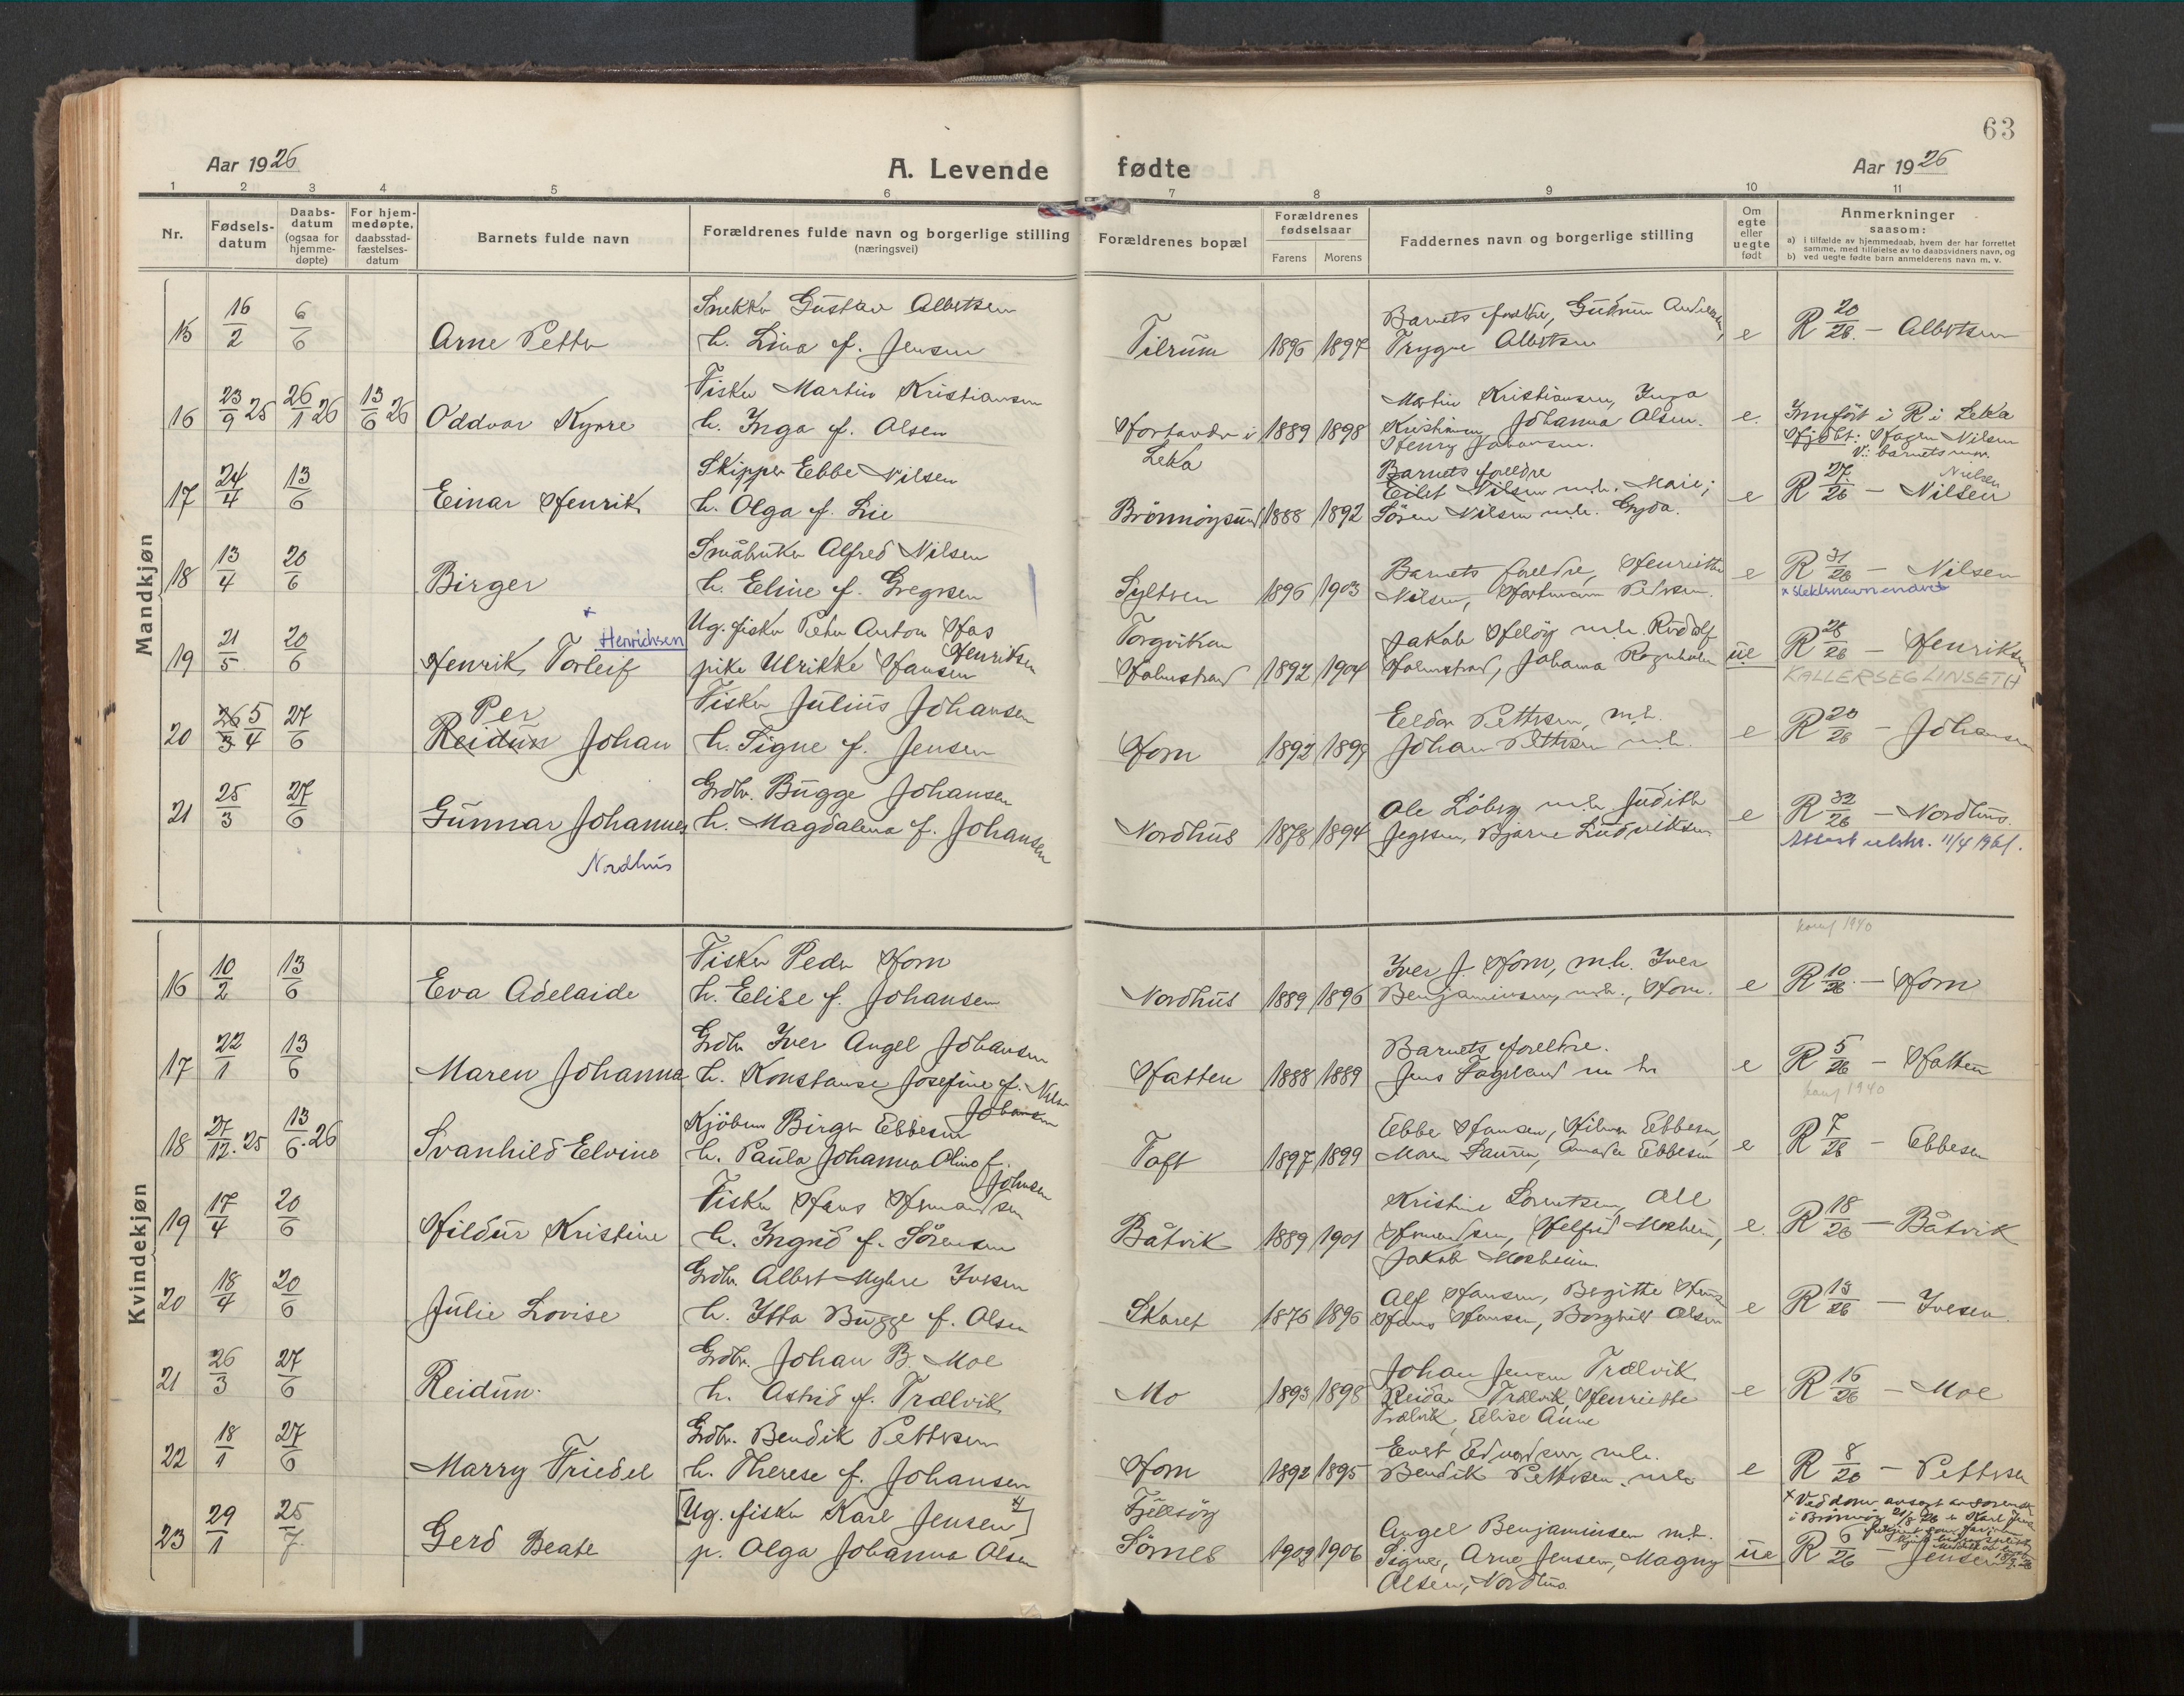 63
Aar 1926
A. Levende fødte
Aar 1926
1 2 3 4 5 6 7 8 9 10 11
Nr.
Fødsels-
datum
Daabs-
datum
(ogsaa for
hjemme-
døpte)
For hjem-
medøpte,
daabsstad-
fæstelses-
datum
Barnets fulde navn
Forældrenes fulde navn og borgerlige stilling
(næringsvei)
Forældrenes bopæl
Forældrenes
fødselsaar
Farens Morens
Faddernes navn og borgerlige stilling
Om
egte
eller
uegte
født
Anmerkninger
saasom:
a) i tilfælde av hjemmedaab, hvem der har forrettet
samme, med tilføielse av to daabsvidners navn, og
b) ved uegte fødte barn anmelderens navn m. v.
Mandkjøn
Snekker Gustav Albertsen
15 16/2 6/6 Arne Petter h. Lina f. Jensen
Tilrum 1896 1897
Barnets foreldre, Gudrun Andersen,
Trygve Albertsen
e R 20/26 - Albertsen
Fisker Martin Kristiansen
16 23/9 25 26/1 26 13/6 26 Oddvar Kyrre h. Inga f. Olsen
Horsever i
Leka
1889 1898
Martin Kristiansen, Inga
Kristiansen, Johanna Olsen.
Henry Johansen.
e. Innført i R i Leka
Hjdbt: Hagen Nilsen
V: barnets mor.
Skipper Ebbe Nilsen
17 24/4 13/6 Einar Henrik h. Olga f. Lie
Brønnøysund 1888 1892
Barnets foreldre
Eilet Nilsen m.h. Marie;
Sören Nilsen m.h. Gyda.
e R 27/26 - Nilsen
Nielsen
Småbruker Alfred Nilsen
18 13/4 20/6 Birger h. Eline f. Gregersen
Sylteren 1896 1903
Barnets foreldre, Henriette
Nilsen, Hartmann Pedersen.
e R 31/26 - Nilsen
x slektsnavn endret
Ug. fisker Peter Anton Has
Henriksen
19 21/5 20/6 Henrik Torleif x Henrichsen
pike Ulrikke Hansen
Torgviken
Holmstrand 1892 1904
Jakob Heløy m.h. Rudolf
Holmstrand, Johanna Ragnhild
ue R 28/26 - Henriksen
KALLER SEG LINSETH
Fisker Julius Johansen
20 26/3 5/4 27/6 Per
Reidun Johan h. Signe f. Jensen
Horn 1892 1899
Eldor Pettersen, m.h.
Johan Pettersen m.h.
e R 20/26 - Johansen
Grdbr. Bugge Johansen
21 25/3 27/6 Gunnar Johannes h. Magdalena f. Johansen
Nordhus
Nordhus 1878 1894
Ole Löberg m.h. Judith
Jegersen, Bjarne Ludviksen
e R 32/26 - Nordhus.
Attest utskr. 11/4 1961.
Kvindekjøn
konf 1940
Fisker Peder Horn
16 10/2 13/6 Eva Adelaide h. Elise f. Johansen
Nordhus 1889 1896
Iver J. Horn, m.h. Iver
Benjaminsen, m.h., Horn.
e R 10/26 - Horn
Grdbr Iver Angel Johansen
17 22/1 13/6 Maren Johanna h. Konstanse Josefine f.
Johansen
Hatten 1888 1889
Barnets foreldre.
Jens Fagerland m h
e R 5/26 - Hatten
konf 1940
Kjöbm Birger Ebbesen
18 27/12. 25 13/6. 26 Svanhild Elvine h. Paula Johanna Oline f.
Johnsen
Toft 1897 1899
Ebbe Hansen, Hilma Ebbesen,
Maren Lauren, Amanda Ebbesen
e R 7/26 - Ebbesen
Fisker Hans Hermandsen
19 17/4 20/6 Hildur Kristine h. Ingrid f. Sörensen
Båtvik 1889 1901
Kristine Lorentsen, Ole
Hermandsen, Helfrid Mosheim,
Jakob Mosheim
e. R 18/26 - Båtvik
Grdbr. Albert Myhre Iversen
20 18/4 20/6 Julie Lovise h. Itta Bugge f. Olsen
Skaret 1876 1896
Alf Hansen, Bergitte
Hans Hansen, Borghild Olsen
e R 13/26 - Iversen.
Grdbr. Johan B. Moe
21 26/3 27/6 Reidun. h. Astrid f. Trælvik
Mo 1893 1898
Johan Jensen Trælvik
Reidar Trælvik, Henriette
Trælvik, Elise Anne
e R 16/26 - Moe
Grdbr. Bendik Pettersen
22 18/1 27/6 Marry Friedel h. Therese f. Johansen
Horn 1892 1895
Evert Edvardsen, m.h.
Bendik Pettersen m.h.
e R 8/26 - Pettersen
[Ug. fisker Karl Jensen x)]
23 29/1 25/7 Gerd Beate p. Olga Johanna Olsen
Fjellsöy
Sömnes 1902 1906
Angel Benjaminsen m.h.
Signe, Arne Jensen, Magny
Olsen, Nordhus
ue R 6/26 - Jensen
x Ved dom avsagt av sorenskr
i Brønnøy 21/8 26 er Karl Jensen